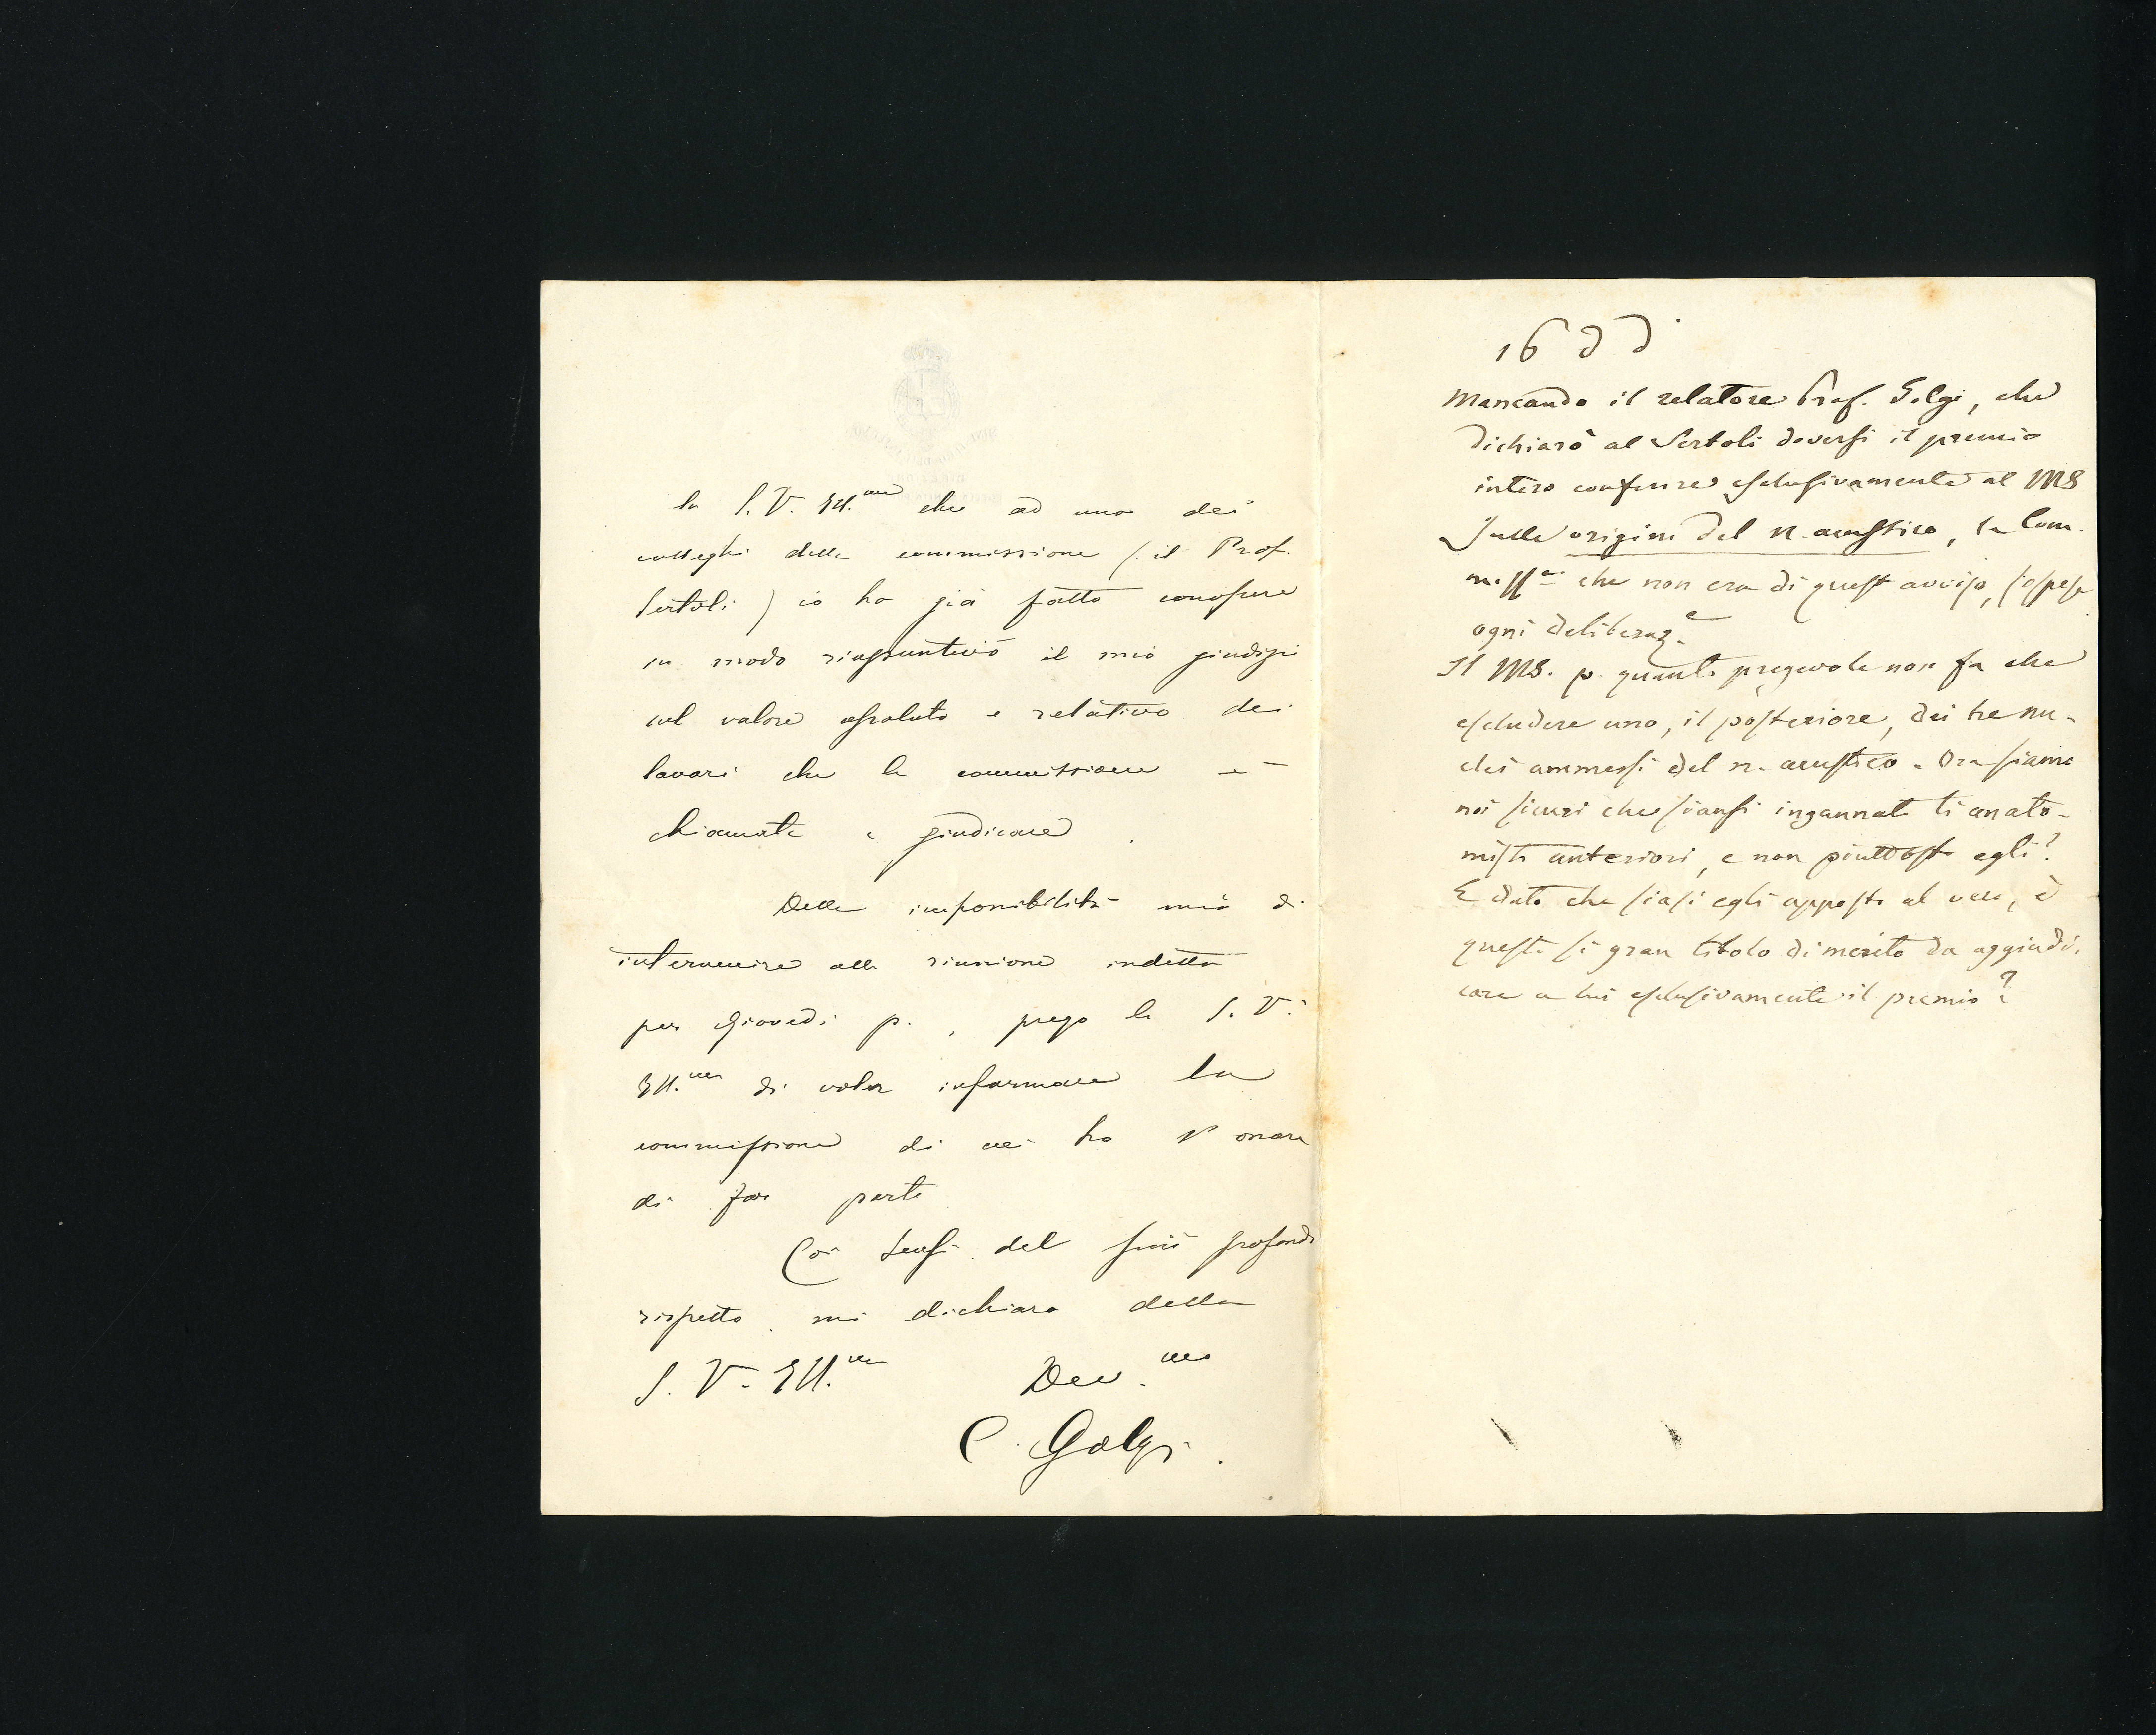 la S. V. Ill.ma che ad uno dei
colleghi della commissione (il Prof.
Sertoli) io ho già fatto conoscere
in modo riassuntivo il mio giudizi
sul valore assoluto e relativo dei
lavori che la commissione è
chiamata a giudicare.
Della impossibilità mia di
intervenire alla riunione indetta
per Giovedì p., prego la S. V.
Ill.ma di voler informare la
commissione di cui ho l'onore
di far parte
Coi sensi del più profondo
rispetto mi dichiaro della
S. V. Ill.ma Dev.mo
C. Golgi.
16 dd.
Mancando il relatore Prof. Golgi, che
dichiarò al Sertoli doversi il premio
intero conferire esclusivamente al MS
Sulle origini del n. acustico, la Com-
miss.e che non era di quest avviso, sospese
ogni deliberaz.e
Il MS. p. quanto pregevole non fa che
escludere uno, il posteriore, dei tre nu-
clei ammessi del n. acustico. Ora siamo
noi sicuri che siansi ingannati li anato-
misti anteriori, e non piuttosto egli?
E dato che siasi egli apposto al vero, è
questo sì gran titolo di merito da aggiudi-
care a lui esclusivamente il premio?